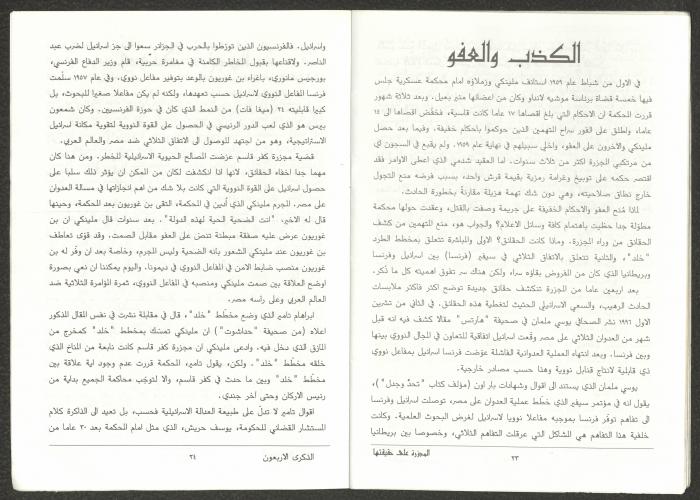 الكذب والعفو
في الاول من شباط عام ١٩٥٩ استانف ملينكي وزملاؤه امام محكمة عسكرية جلس
فيها خمسة قضاة برئاسة موشيه لانداو وكان من اعضائها متير بعيل. وبعد ثلاثة شهور
قررت المحكمة ان الاحكام التي بلغ اقصاها ١٧ عاما كانت قاسية، فخفّض اقصاها الى ١٤
عاما، واطلق على الفور سراح المتهمين الذين حوكموا باحكام خفيفة. وفيما بعد حصل
ملينكي والآخرون على العفو، واخلي سبيلهم في نهاية عام ١٩٥٩. ولم يقبع في السجون اي
من مرتكبي المجزرة اكثر من ثلاث سنوات. اما العقيد شدمي الذي اعطى الاوامر فقد
اقتصر حكمه على توبيخ وغرامة رمزية بقيمة قرش واحد، بسبب فرضه منع التجول
خارج نطاق صلاحيته، وهي دون شك تهمة هزيلة مقارنة بخطورة الحادث.
لماذا مُنح العفو والاحكام الخفيفة على جريمة وصفت بالقتل، وعقدت حولها محكمة
مطوّلة جدا حظيت باهتمام كافة وسائل الاعلام؟ والجواب هو، منع المتهمين من كشف
الحقائق من وراء المجزرة. وماذا كانت الحقائق؟ الاولى والمباشرة تتعلق بمخطط الطرد
"خلد"، والثانية تتعلق بالاتفاق الثلاثي في سيفر (فرنسا) بين اسرائيل وفرنسا
وبريطانيا الذي كان من المفروض بقاؤه سراء ولكن هناك سر تفوق اهميته كل ما ذُكر.
بعد اربعين عاما من المجزرة تتكشف حقائق جديدة توضح اكثر فاكثر ملابسات
الحادث الرهيب، والسعي الاسرائيلي الحثيث لتغطية هذه الحقائق. في الثاني من تشرين
الاول ١٩٩٦ نشر الصحافي يوسي ملمان في صحيفة "هآرتس" مقالا كشف فيه انه قبل
شهر من العدوان الثلاثي على مصر وقّعت اسرائيل اتفاقية للتعاون في المجال النووي بينها
وبين فرنسا. وبعد انتهاء العملية العدوانية الفاشلة عوّضت فرنسا اسرائيل بمفاعل نووي
ذي قابلية لانتاج قنابل نووية وهذا حسب مصادر خارجية.
يوسي ملمان الذي يستند الى اقوال وشهادات بار اون (مؤلف كتاب "تحدّ وجدل")،
يقول انه في مؤتمر سيفر الذي خطّط عملية العدوان على مصر، توصلت اسرائيل وفرنسا
الى تفاهم توفّر فرنسا بموجبه مفاعلا نوويا لاسرائيل لغرض البحوث العلمية. وكانت
خلفية هذا التفاهم هي المشاكل التي عرقلت التفاهم الثلاثي، وخصوصا بين بريطانيا
المجزرة على حقيقتها
٢٣
واسرائيل. فالفرنسيون الذين تورّطوا بالحرب في الجزائر سعوا الى جر اسرائيل لضرب عبد
الناصر. ولاقناعها بقبول المخاطر الكامنة في مغامرة حربية، قام وزير الدفاع الفرنسي،
بورجيس مانوري، باغراء بن غوريون بالوعد بتوفير مفاعل نووي. وفي عام ١٩٥٧ سلّمت
فرنسا المفاعل النووي لاسرائيل حسب تعهدها، ولكنه لم يكن مفاعلا صغيرا للبحوث، بل
كبيرا قابليته ٢٤ (ميغا فات) من النمط الذي كان في حوزة الفرنسيين. وكان شمعون
بيرس هو الذي لعب الدور الرئيسي في الحصول على القوة النووية لتقوية مكانة اسرائيل
الاستراتيجية، وهو من اجتهد للوصول الى الاتفاق الثلاثي ضد مصر والعالم العربي.
قضية مجزرة كفر قاسم عرّضت المصالح الحيوية الاسرائيلية للخطر. ومن هنا كان
مهما جدا اخفاء الحقائق، لانها اذا انكشفت لكان من الممكن ان يؤثر ذلك سلبا على
حصول اسرائيل على القوة النووية التي كانت بلا شك من اهم انجازاتها في مسألة العدوان
على مصر. المجرم ملينكي الذي أدين في المحكمة، التقى بن غوريون بعد المحكمة، وحينها
قال له الاخير، "انت الضحية الحية لهذه الدولة". بعد سنوات قال ملينكي ان بن
غوريون عرض عليه صفقة مبطنة تنص على العفو مقابل الصمت. وقد قوّى تعاطف
بن غوريون عند ملينكي الشعور بانه الضحية وليس المجرم، وخاصة بعد ان وفّر له بن
غوريون منصب ضابط الامن في المفاعل النووي في ديمونا. واليوم يمكننا ان نعي بصورة
اوضح العلاقة بين صمت ملينكي ومنصبه في المفاعل النووي، ثمرة المؤامرة الثلاثية ضد
العالم العربي وعلى رأسه مصر.
ابراهام تامير الذي وضع مخطّط "خلد"، قال في مقابلة نشرت في نفس المقال المذكور
اعلاه (من صحيفة "حداشوت") ان ملينكي تمسّك بمخطط "خلد" كمخرج من
المازق الذي دخل فيه. وادعى ملينكي ان مجزرة كفر قاسم كانت نابعة من المناخ الذي
خلقه مخطّط "خلد". ولكن، يقول تامير، المحكمة قررت عدم وجود اية علاقة بين
مخطّط "خلد" وبين ما حدث في كفر قاسم، والا لتوجّب محاكمة الجميع بداية من
رئيس الاركان وحتى آخر جندي.
اقوال تامير لا تدلّ على طبيعة العدالة الاسرائيلية فحسب، بل تعيد الى الذاكرة كلام
المستشار القضائي للحكومة، يوسف حريش، الذي مثل امام المحكمة بعد ٣٠ عاما من
الذكرى الاربعون
٢٤